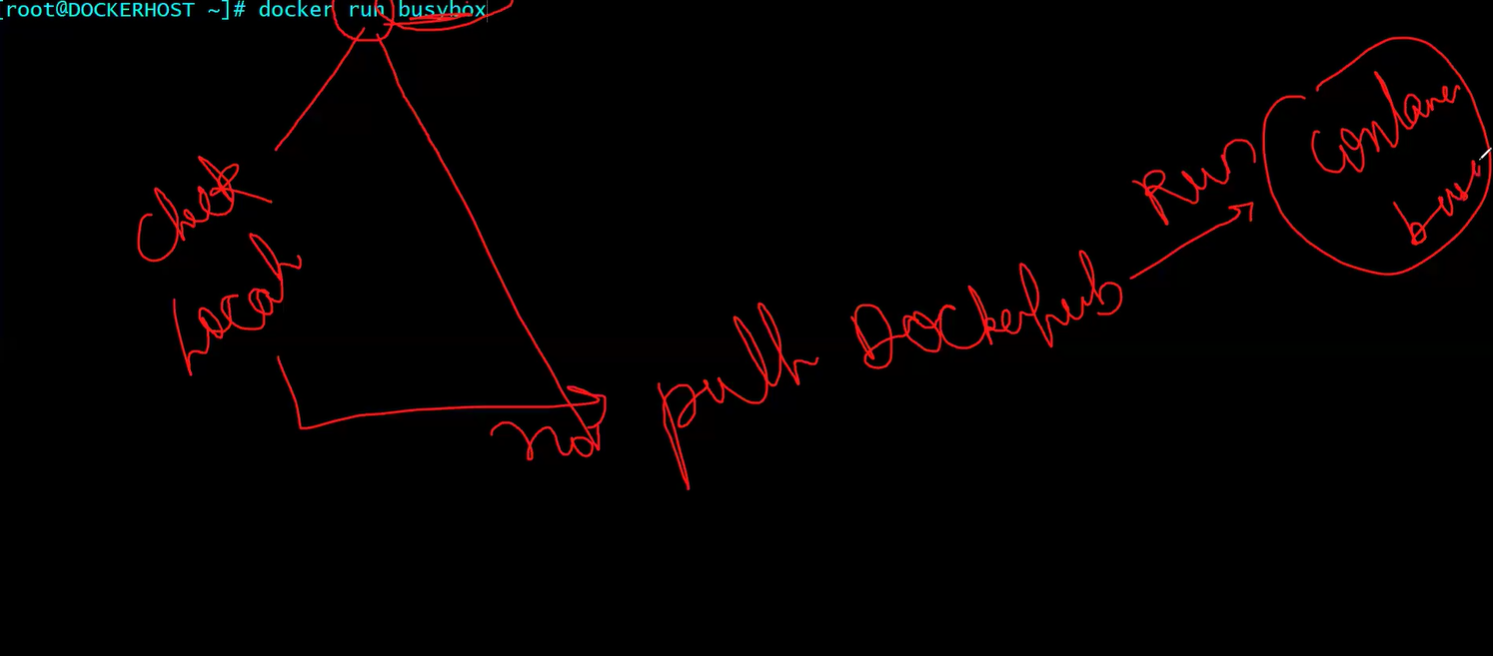 [root@DOCKERHOST ~]# docker run busybox
Check
Local
not
pull Dockerhub
Run